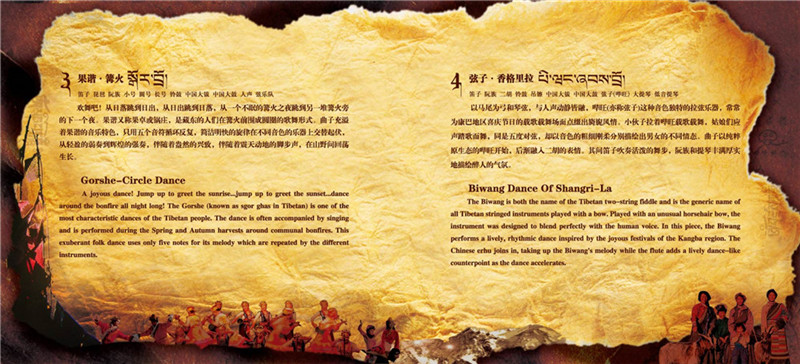 3 果谐·篝火 སྒོར་བྲོ།
笛子 琵琶 阮族 小号 圆号 长号 铃鼓 中国大钹 中国大鼓 人声 弦乐队
欢舞吧!从日落跳到日出,从日出跳到日落,从一个不眠的篝火之夜跳到另一堆篝火旁
的下一个夜。果谐又称果卓或锅庄,是藏东的人们在篝火前围成圆圈的歌舞形式。曲子充溢
着果谐的音乐特色,只用五个音符循环反复,简洁明快的旋律在不同音色的乐器上交替起伏,
从轻盈的弱奏到辉煌的强奏,伴随着盎然的兴致,伴随着震天动地的脚步声,在山野间回荡
生长。
Gorshe-Circle Dance
A joyous dance! Jump up to greet the sunrise...jump up to greet the sunset...dance
around the bonfire all night long! The Gorshe (known as sgor ghas in Tibetan) is one of the
most characteristic dances of the Tibetan people. The dance is often accompanied by singing
and is performed during the Spring and Autumn harvests around communal bonfires. This
exuberant folk dance uses only five notes for its melody which are repeated by the different
instruments.
4 弦子·香格里拉
笛子 阮族 二胡 铃鼓 吊镲 中国大镲 中国大鼓 笛子(哔旺) 大提琴 低音提琴
以马尾为弓和琴弦,与人声动静皆融,哔旺(亦称弦子)这种音色独特的拉弦乐器,常常
为康巴地区喜庆节日的载歌载舞场面点缀出旖旎风情。小伙子拉着哔旺载歌载舞,姑娘们应
声踏歌而舞,同是五度对弦,却以音色的粗细刚柔分别描绘出男女的不同情态。曲子以纯粹
原生态的哔旺开始,后渐融入二胡的表情。其间笛子吹奏活泼的舞步,阮族和提琴丰满厚实
地描绘醉人的气氛。
Biwang Dance Of Shangri-La
The Biwang is both the name of the Tibetan two-string fiddle and is the generic name of
all Tibetan stringed instruments played with a bow. Played with an unusual horsehair bow, the
instrument was designed to blend perfectly with the human voice. In this piece, the Biwang
performs a lively, rhythmic dance inspired by the joyous festivals of the Kangba region. The
Chinese erhu joins in, taking up the Biwang's melody while the flute adds a lively dance-like
counterpoint as the dance accelerates.